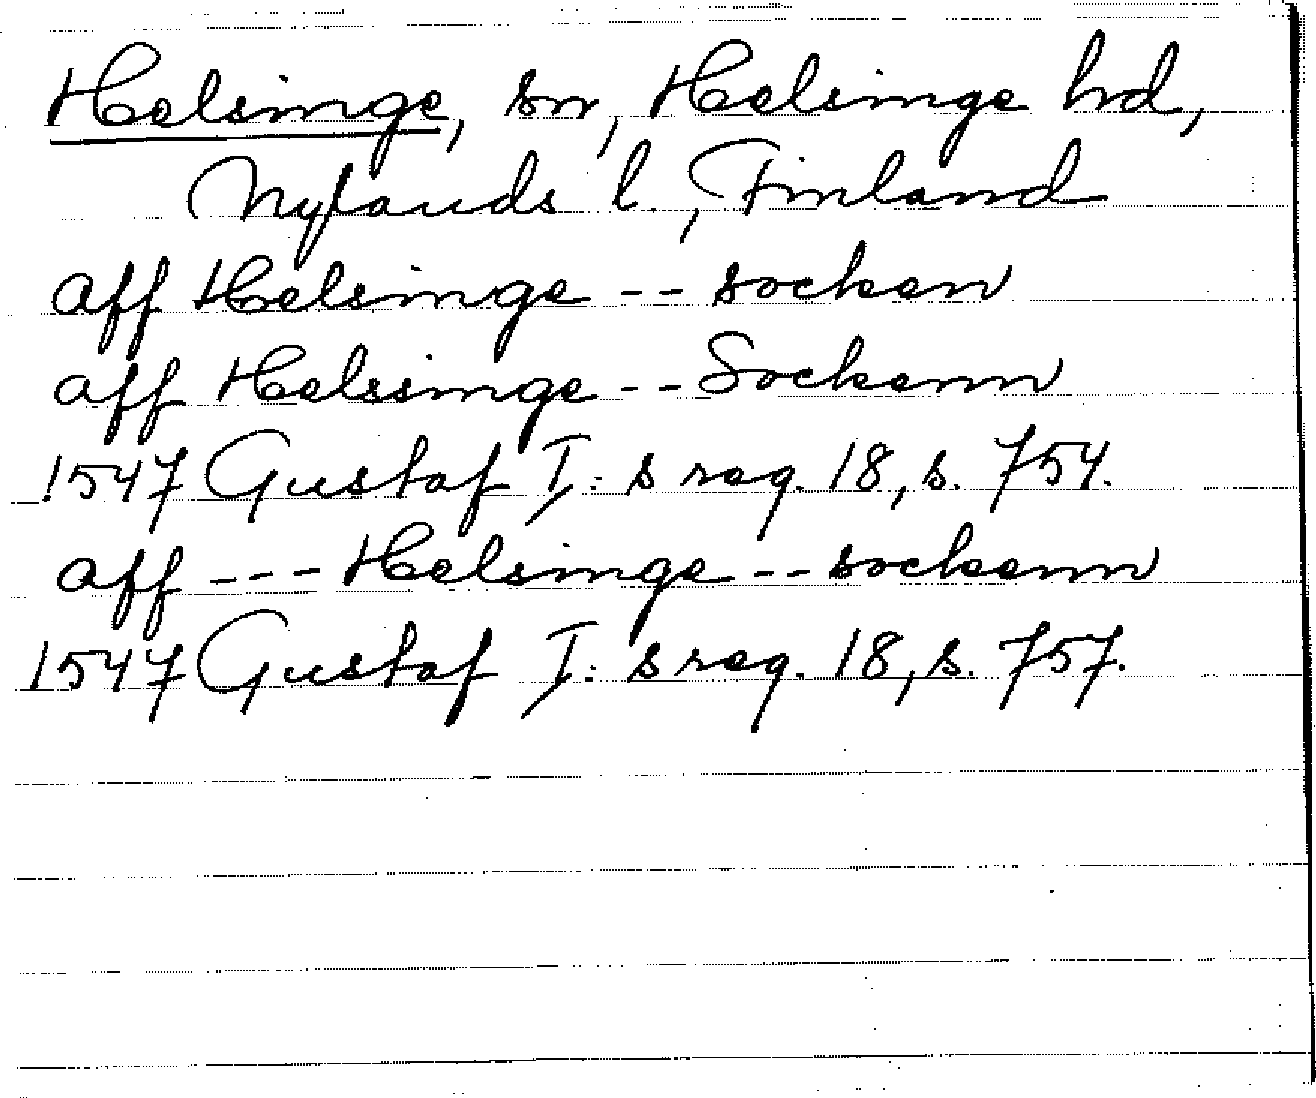 Helsinge, sn, Helsinge hd,
Nylands l., Finland
aff Helsinge -- socken
aff Helssinge -- Sockenn
1547 Gustaf I:s reg. 18, s. 754.
aff --- Helsinge -- sockenn
1547 Gustaf I:s reg. 18, s. 757.